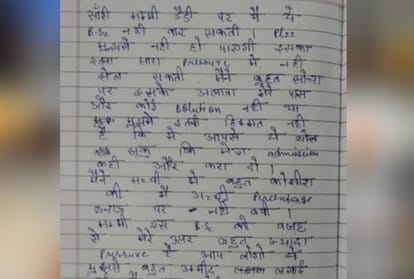 सॉरी मम्मी डैडी पर मैं ये
B.Sc नहीं कर सकती। Plzz
मुझसे नहीं हो पाएगी इसका
इतना सारा Pressure मैं नहीं
झेल सकती मैंने बहुत सोचा
पर इसके अलावा मेरे पास
और कोई solution नहीं था
मुझमें इतनी हिम्मत नहीं
है कि मैं आपसे ये बोल
सकूं कि मेरा admission
कहीं और करा दो।
मैंने में बहुत कोशिश
की मैं अच्छी Percentage
बनाऊं पर नहीं बनी।
मम्मी इस B.Sc की वजह
से मेरे ऊपर बहुत ज्यादा
Pressure है आप लोगों ने
मुझसे बहुत उम्मीद लगाई